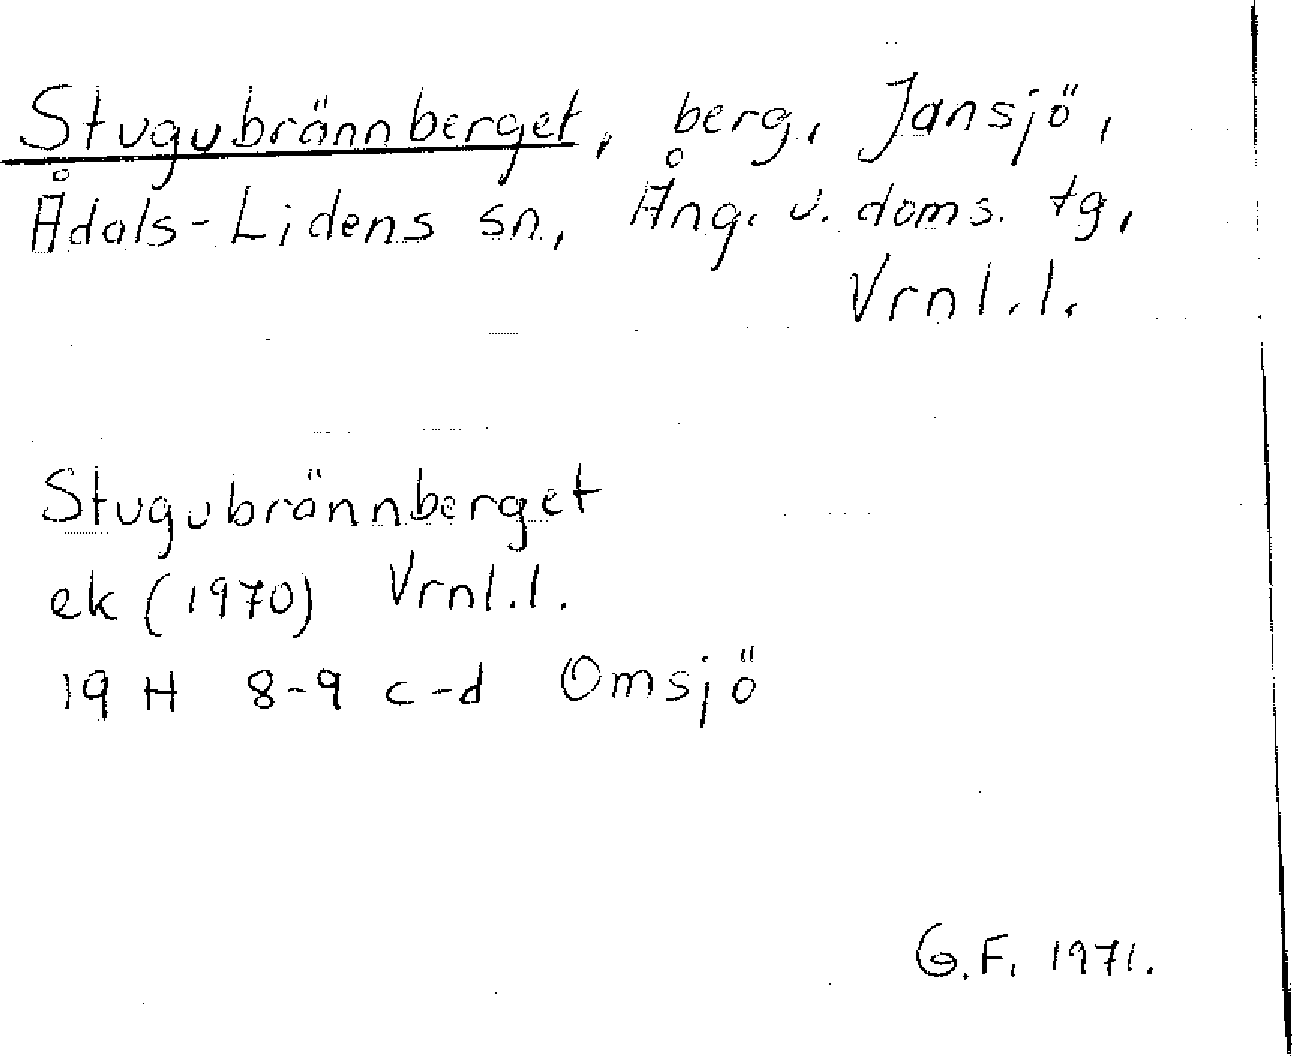 Stugubrännberget, berg, Jansjö,
Ådals-Lidens sn, Ång. v. doms. tg,
Vrnl. l.
Stugubrännberget
ek (1970) Vrnl. l.
19 H 8-9 c-d Omsjö
G.F. 1971.